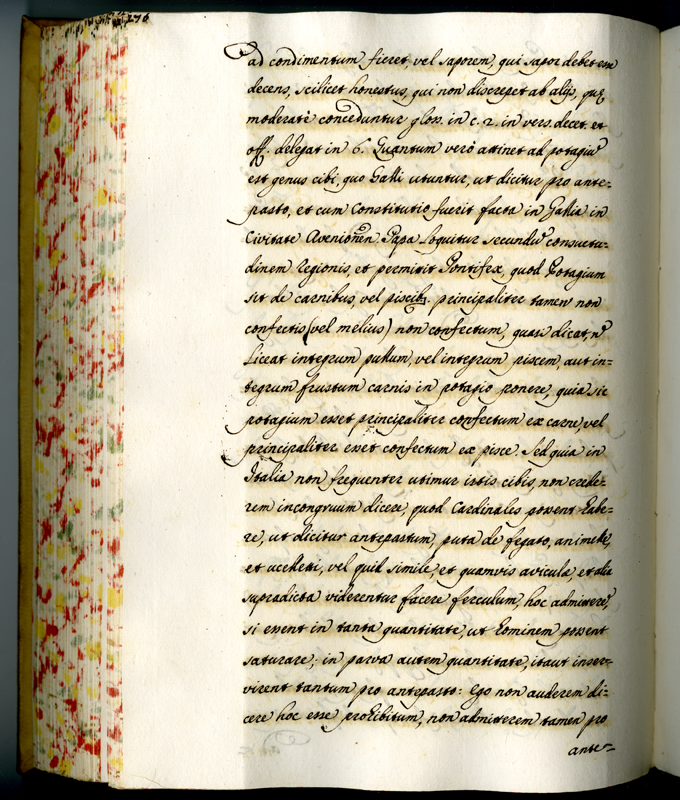 276
ad condimentum fieret, vel saporem, qui sapor debet esse
decens, scilicet honestus, qui non discrepet ab alijs, quę
moderatè conceduntur glos. in c. 2. in vers. decet. et
off. delegat in 6. Quantum verò attinet ad potagiũ
est genus cibi, quo Galli utuntur, ut dicitur pro ante=
pasto, et cum Constitutio fuerit facta in Gallia in
Civitate Avenionen Papa loquitur secundũ consuetu=
dinem Regionis, et permittit Pontifex, quod Potagium
sit de carnibus, vel piscib. principaliter tamen non
confectis (vel melius) non confectum, quasi dicat, ñ
liceat integrum pullum, vel integrum piscem, aut in=
tegrum frustum carnis in potagio ponere, quia sic
potagium esset principaliter confectum ex carne, vel
principaliter esset confectum ex pisce. Sed quia in
Italia non frequenter utimur istis cibis, non crede=
rem incongruum dicere, quod Cardinales possent habe=
re, ut dicitur antepastum, puta de fegato, animelle,
et uccelletti, vel quid simile, et quamvis avicula, et alia
supradicta viderentur facere ferculum, hoc admitterẽ,
si essent in tanta quantitate, ut hominem possent
saturare; in parva autem quantitate, itaut inser=
virent tantum pro antepasto: Ego non auderem di=
cere hoc esse prohibitum, non admitterem tamen pro
ante=